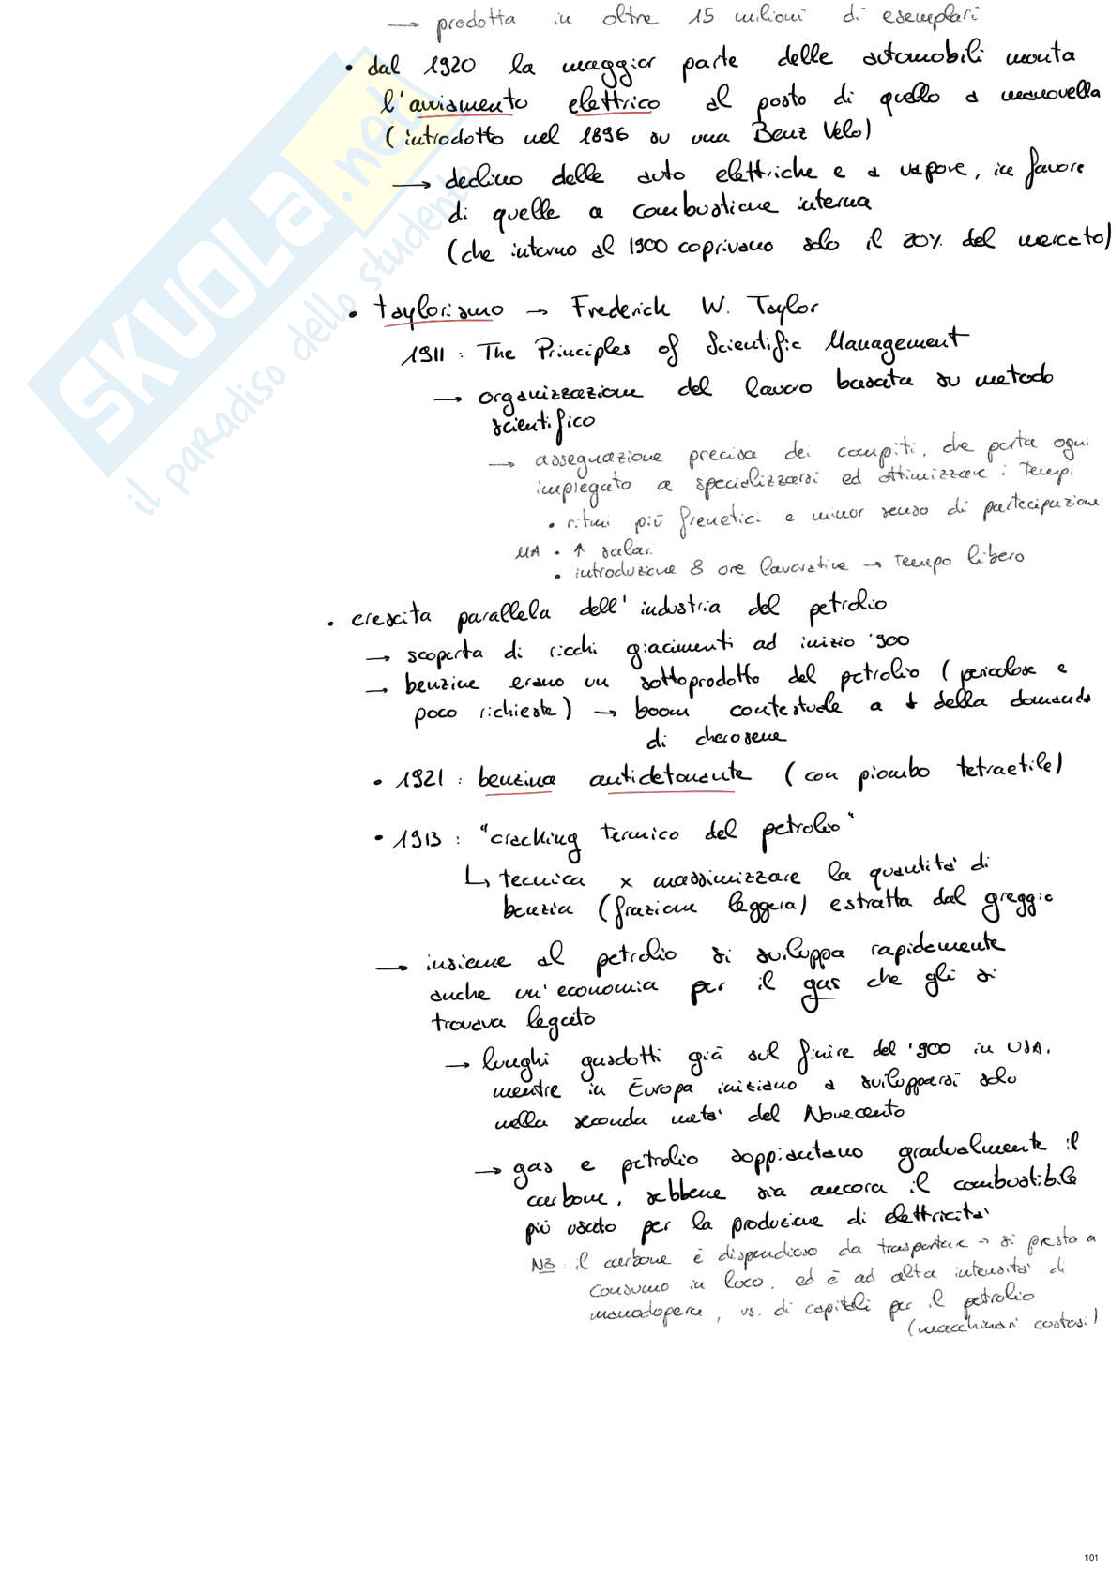 → prodotta in oltre 15 milioni di esemplari
• dal 1920 la maggior parte delle automobili monta
l'avviamento elettrico al posto di quello a manovella
(introdotto nel 1896 su una Benz Velo)
→ declino delle auto elettriche e a vapore, in favore
di quelle a combustione interna
(che intorno al 1900 coprivano solo il 20% del mercato)
• taylorismo → Frederick W. Taylor
1911: The Principles of Scientific Management
→ organizzazione del lavoro basata su metodo
scientifico
→ assegnazione precisa dei compiti, che porta ogni
impiegato a specializzarsi ed ottimizzare i tempi
• ritmi più frenetici e minor senso di partecipazione
MA • ↑ salari
• introduzione 8 ore lavorative → tempo libero
• crescita parallela dell'industria del petrolio
→ scoperta di ricchi giacimenti ad inizio '900
→ benzine erano un sottoprodotto del petrolio (pericolose e
poco richieste) → boom contestuale a ↓ della domanda
di cherosene
• 1921: benzina antidetonante (con piombo tetraetile)
• 1913: "cracking termico del petrolio"
↳ tecnica x massimizzare la quantità di
benzia (frazione leggera) estratta dal greggio
→ insieme al petrolio si sviluppa rapidamente
anche un'economia per il gas che gli si
trovava legato
→ lunghi gasdotti già sul finire del '900 in USA,
mentre in Europa iniziano a svilupparsi solo
nella seconda metà del Novecento
→ gas e petrolio soppiantano gradualmente il
carbone, sebbene sia ancora il combustibile
più usato per la produzione di elettricità
NB il carbone è dispendioso da trasportare → si presta a
consumo in loco, ed è ad alta intensità di
manodopera, vs. di capitali per il petrolio
(macchinari costosi)
SKUOLA.net
il paradiso dello studente
101